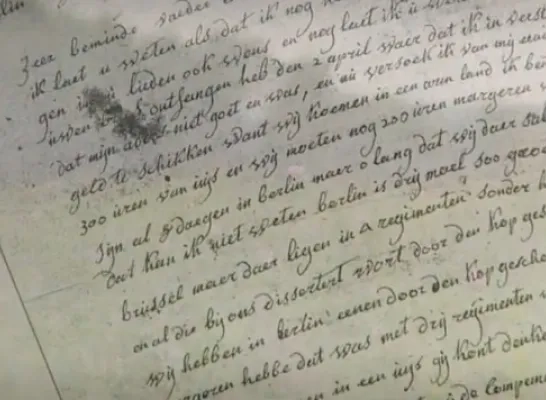 Zeer beminde vaeder en
ik laet u weten als dat ik nog
gen u lieden ook wens en nog laet ik u
uwen ontfangen heb den 2 april waer dat ik in verst
dat mijn niet goet en was, en nu versoek ik van mij
geld te schikken want wij koemen in een arm land ik ben
300 uren van uijs en wij moeten nog 200 uren margeren
sijn al daegen in berlin maer o lang dat wij daer sul
dat kan ik niet weten berlin is drij mael soo groo
brussel maer daer ligen in a regimenten sonder
en al die bij ons dissortert wort door den kop ges
wij hebben in berlin eenen door den kop gescho
hebbe dat was met drij regimenten
in een uijs gij kont denke
de compen